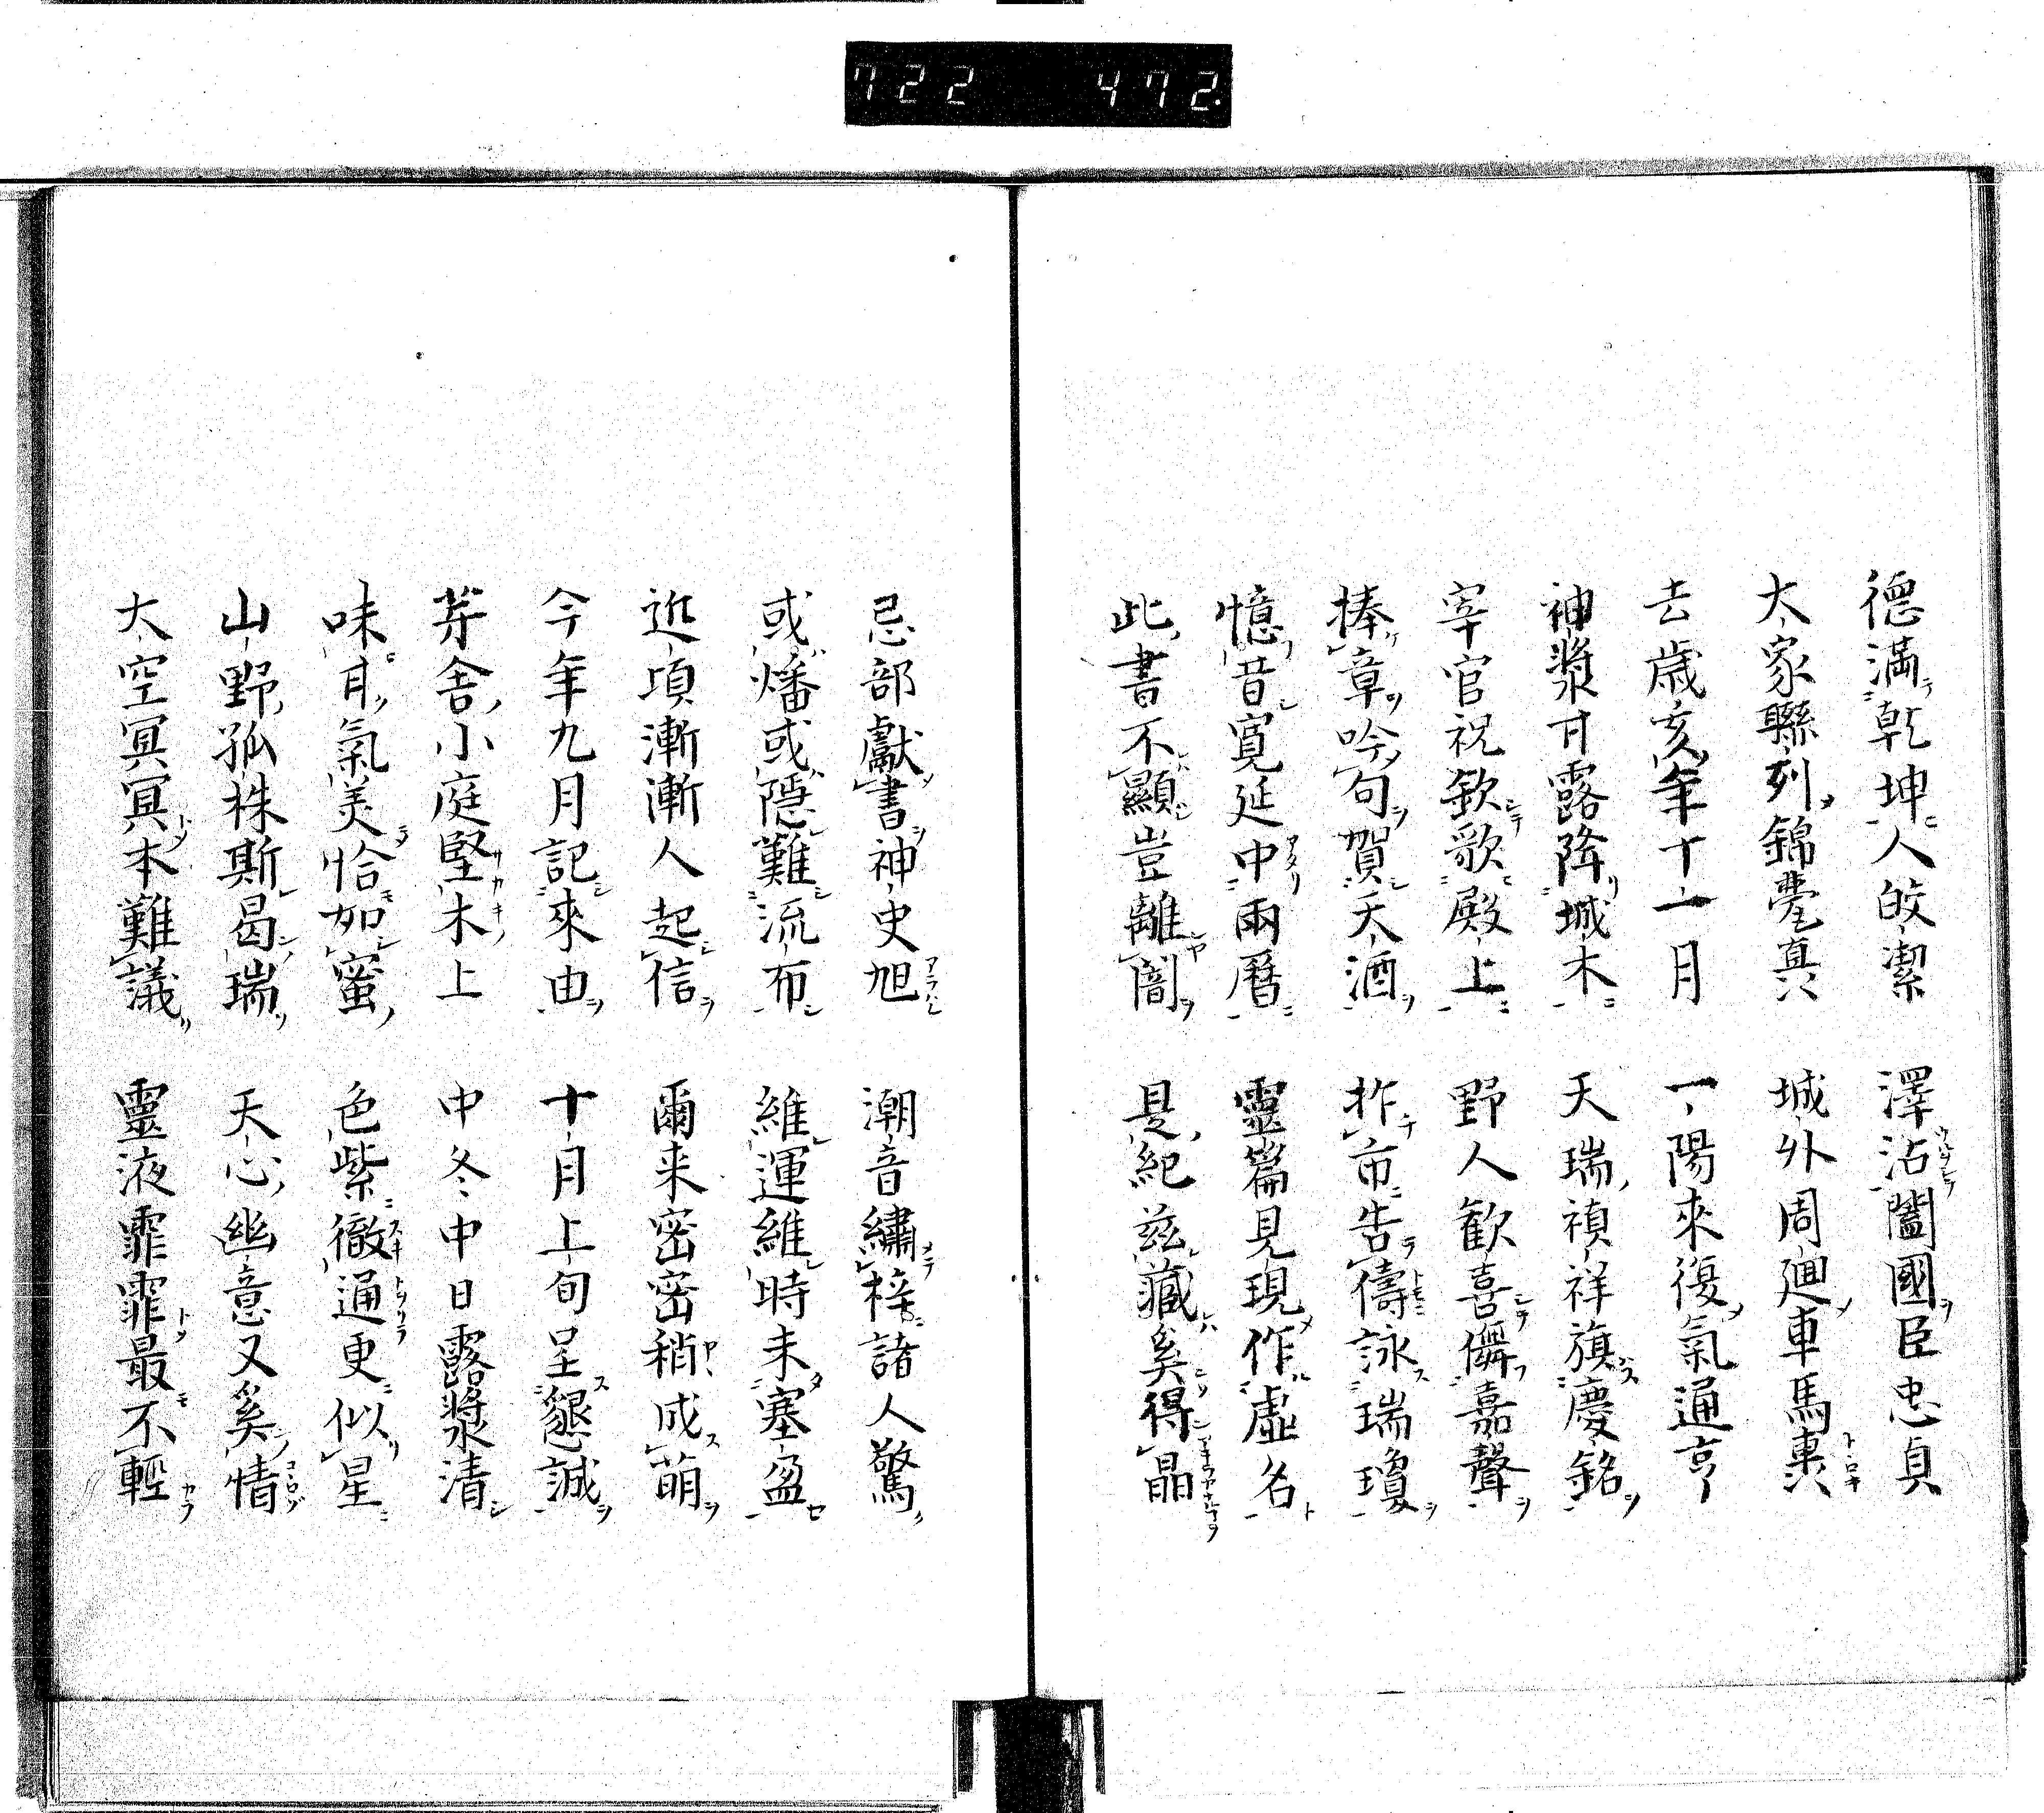 722 472.
德滿乾坤人皎潔 澤沾闔國臣忠貞
太家聯列錦甍真 城外周廻車馬轟
去歳亥年十一月 一陽來復氣通亨
神漿甘露降城木 天瑞禎祥旗慶銘
宰官祝欽歌殿上 野人歓喜儛嘉聲
捧章吟句賀天酒 拃市告儔詠瑞瓊
憶昔寛延中兩暦 靈篇見現作虚名
此書不顯豈離闇 是紀茲藏奚得晶
忌部獻書神史旭 潮音繡梓諸人驚
或燔或隱難流布 維運維時未塞盈
近頃漸漸人起信 爾来密密稍成萌
今年九月記來由 十月上旬呈懇誠
茅舎小庭堅木上 中冬中日露漿清
味甘氣美恰如蜜 色紫徹通更似星
山野孤株斯曷瑞 天心幽意又奚情
大空冥冥本難議 靈液霏霏最不輕